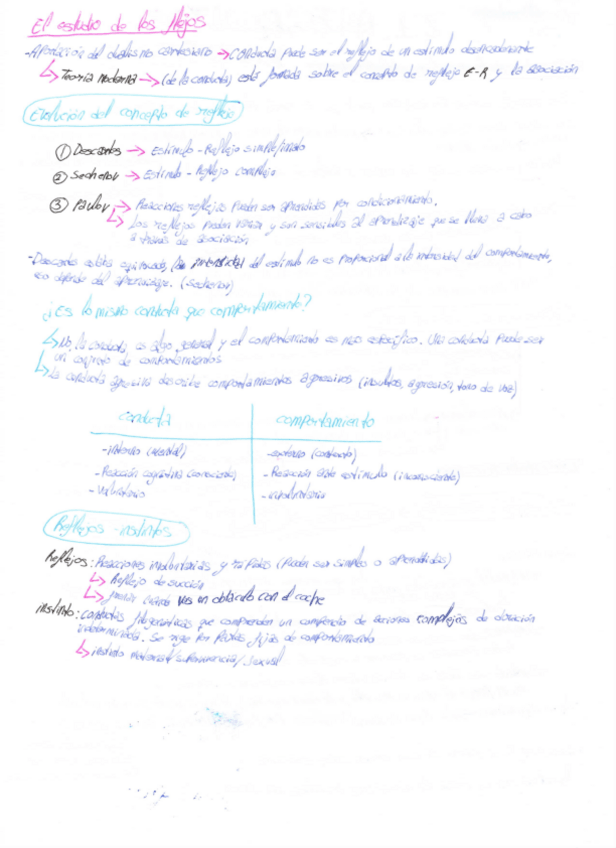 El estudio de los flejos
-Aportación del dualismo cartesiano → Conducta puede ser el reflejo de un estímulo desencadenante
↳ Teoría moderna → (de la conducta) está formada sobre el concepto de reflejo E-R y la asociación
Evolución del concepto de reflejo
① Descartes → Estímulo - Reflejo
② Sechenov → Estímulo - Reflejo complejo
③ Pavlov → Reacciones reflejas pueden ser aprendidas por condicionamiento.
↳ Los reflejos pueden variar y son sensibles al aprendizaje que se lleva a cabo
a través de asociación
-Descartes estaba equivocado, (la intensidad del estímulo no es proporcional a la intensidad del comportamiento,
eso depende del aprendizaje. (Sechenov)
¿Es lo mismo conducta que comportamiento?
↳ No, la conducta es algo general y el comportamiento es más específico. Una conducta puede ser
un conjunto de comportamientos
↳ La conducta agresiva describe comportamientos agresivos (insultos, agresión, tono de voz)
conducta comportamiento
-interno (mental) -externo (contexto)
-Reacción cognitiva (consciente) -Reacción ante estímulo (inconsciente)
-Voluntario -involuntario
Reflejos - instintos
Reflejos: Reacciones involuntarias y rápidas (Pueden ser simples o aprendidas)
↳ Reflejo de succión
↳ frenar cuando ves un obstáculo con el coche
instinto: conductas filogenéticas que comprenden un compendio de acciones complejas de duración
indeterminada. Se rige por Pautas fijas de comportamiento
↳ instinto maternal/supervivencia/sexual